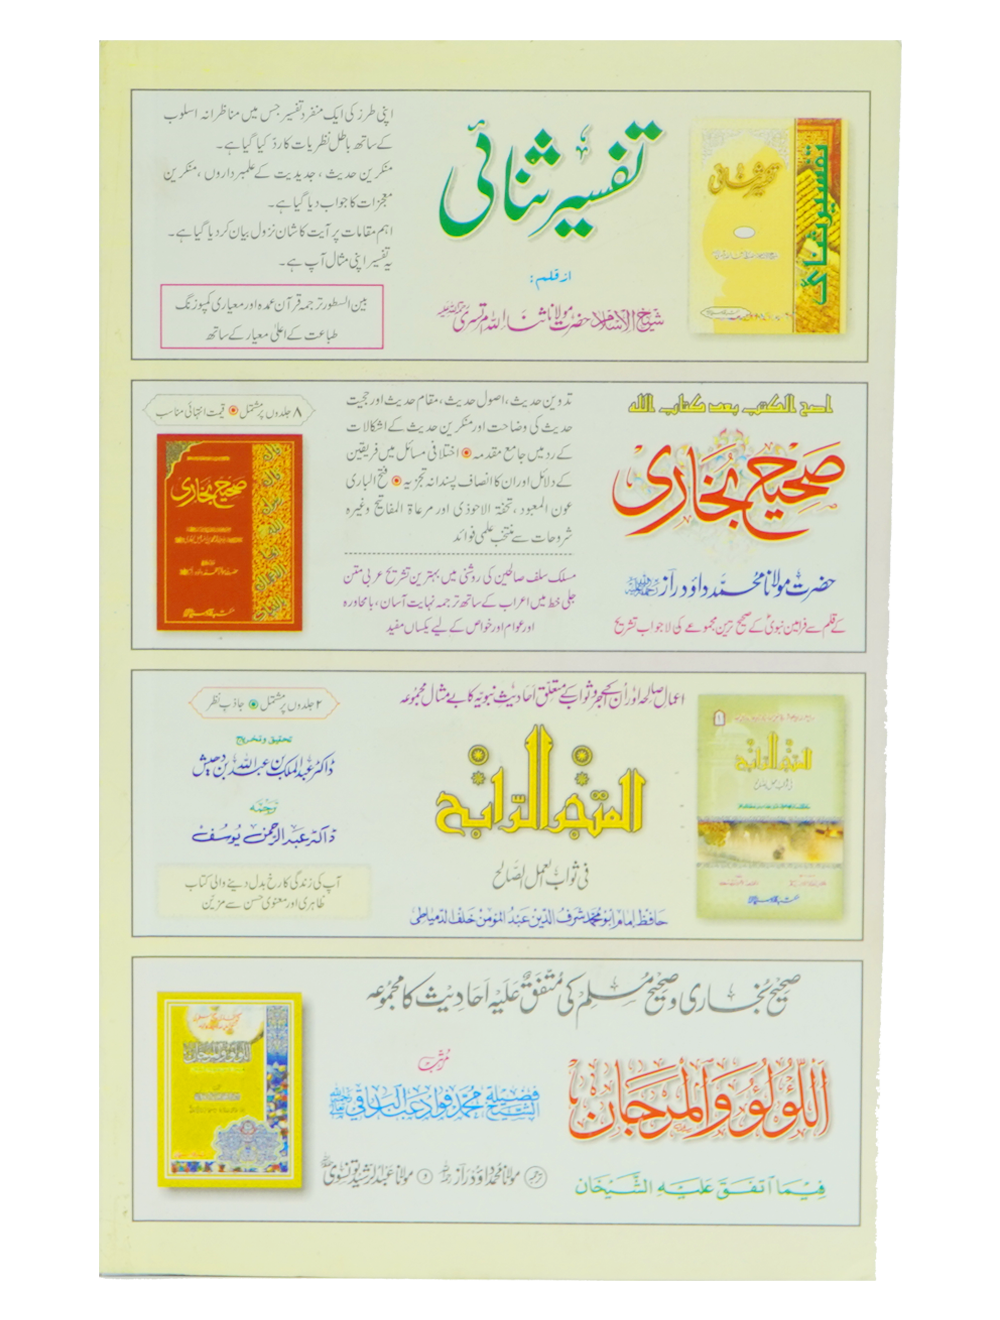 تفسیر ثنائی
از قلم:
شیخ الاسلام حضرت مولانا ثناء اللہ امرتسری
اپنی طرز کی ایک منفرد تفسیر جس میں مناظرانہ اسلوب
کے ساتھ باطل نظریات کا رد کیا گیا ہے۔
منکرین حدیث ، جدیدیت کے علمبرداروں ، منکرین
معجزات کا جواب دیا گیا ہے۔
اہم مقامات پر آیت کا شان نزول بیان کر دیا گیا ہے۔
یہ تفسیر اپنی مثال آپ ہے۔
بین السطور ترجمہ قرآن عمدہ اور معیاری کمپوزنگ
طباعت کے اعلیٰ معیار کے ساتھ
تفسیر ثنائی
اصح الکتب بعد کتاب اللہ
صحیح بخاری
حضرت مولانا محمد داؤد راز
کے قلم سے فرامین نبویؐ کے صحیح ترین مجموعے کی لاجواب تشریح
تدوین حدیث، اصول حدیث، مقام حدیث اور حجیت
حدیث کی وضاحت اور منکرین حدیث کے اشکالات
کے رد میں جامع مقدمہ ● اختلافی مسائل میں فریقین
کے دلائل اور ان کا انصاف پسندانہ تجزیہ ● فتح الباری
عون المعبود، تحفۃ الاحوذی اور مرعاۃ المفاتیح وغیرہ
شروحات سے منتخب علمی فوائد
مسلک سلف صالحین کی روشنی میں بہترین تشریح عربی متن
جلی خط میں اعراب کے ساتھ ترجمہ نہایت آسان، بامحاورہ
اور عوام اور خواص کے لیے یکساں مفید
۸ جلدوں پر مشتمل ● قیمت انتہائی مناسب
صحیح بخاری
اعمال صالحہ اور اُن کے اجر و ثواب کے متعلق احادیث نبویہ کا بے مثال مجموعہ
المتجر الرابح
فی ثواب العمل الصالح
حافظ امام ابو محمد شرف الدین عبد المؤمن خلف الدمیاطی
۲ جلدوں پر مشتمل ● جاذب نظر
تحقیق و تخریج
ڈاکٹر عبدالملک بن عبداللہ بن دھیش
ترجمہ
ڈاکٹر عبدالرحمن یوسف
آپ کی زندگی کا رخ بدل دینے والی کتاب
ظاہری اور معنوی حسن سے مزین
المتجر الرابح
صحیح بخاری و صحیح مسلم کی متفق علیہ احادیث کا مجموعہ
اللؤلؤ والمرجان
فیما اتفق علیہ الشیخان
مرتب
فضیلۃ الشیخ محمد فواد عبدالباقی
ترجمہ مولانا محمد داؤد راز و مولانا عبدالرشید تونسوی
اللؤلؤ والمرجان